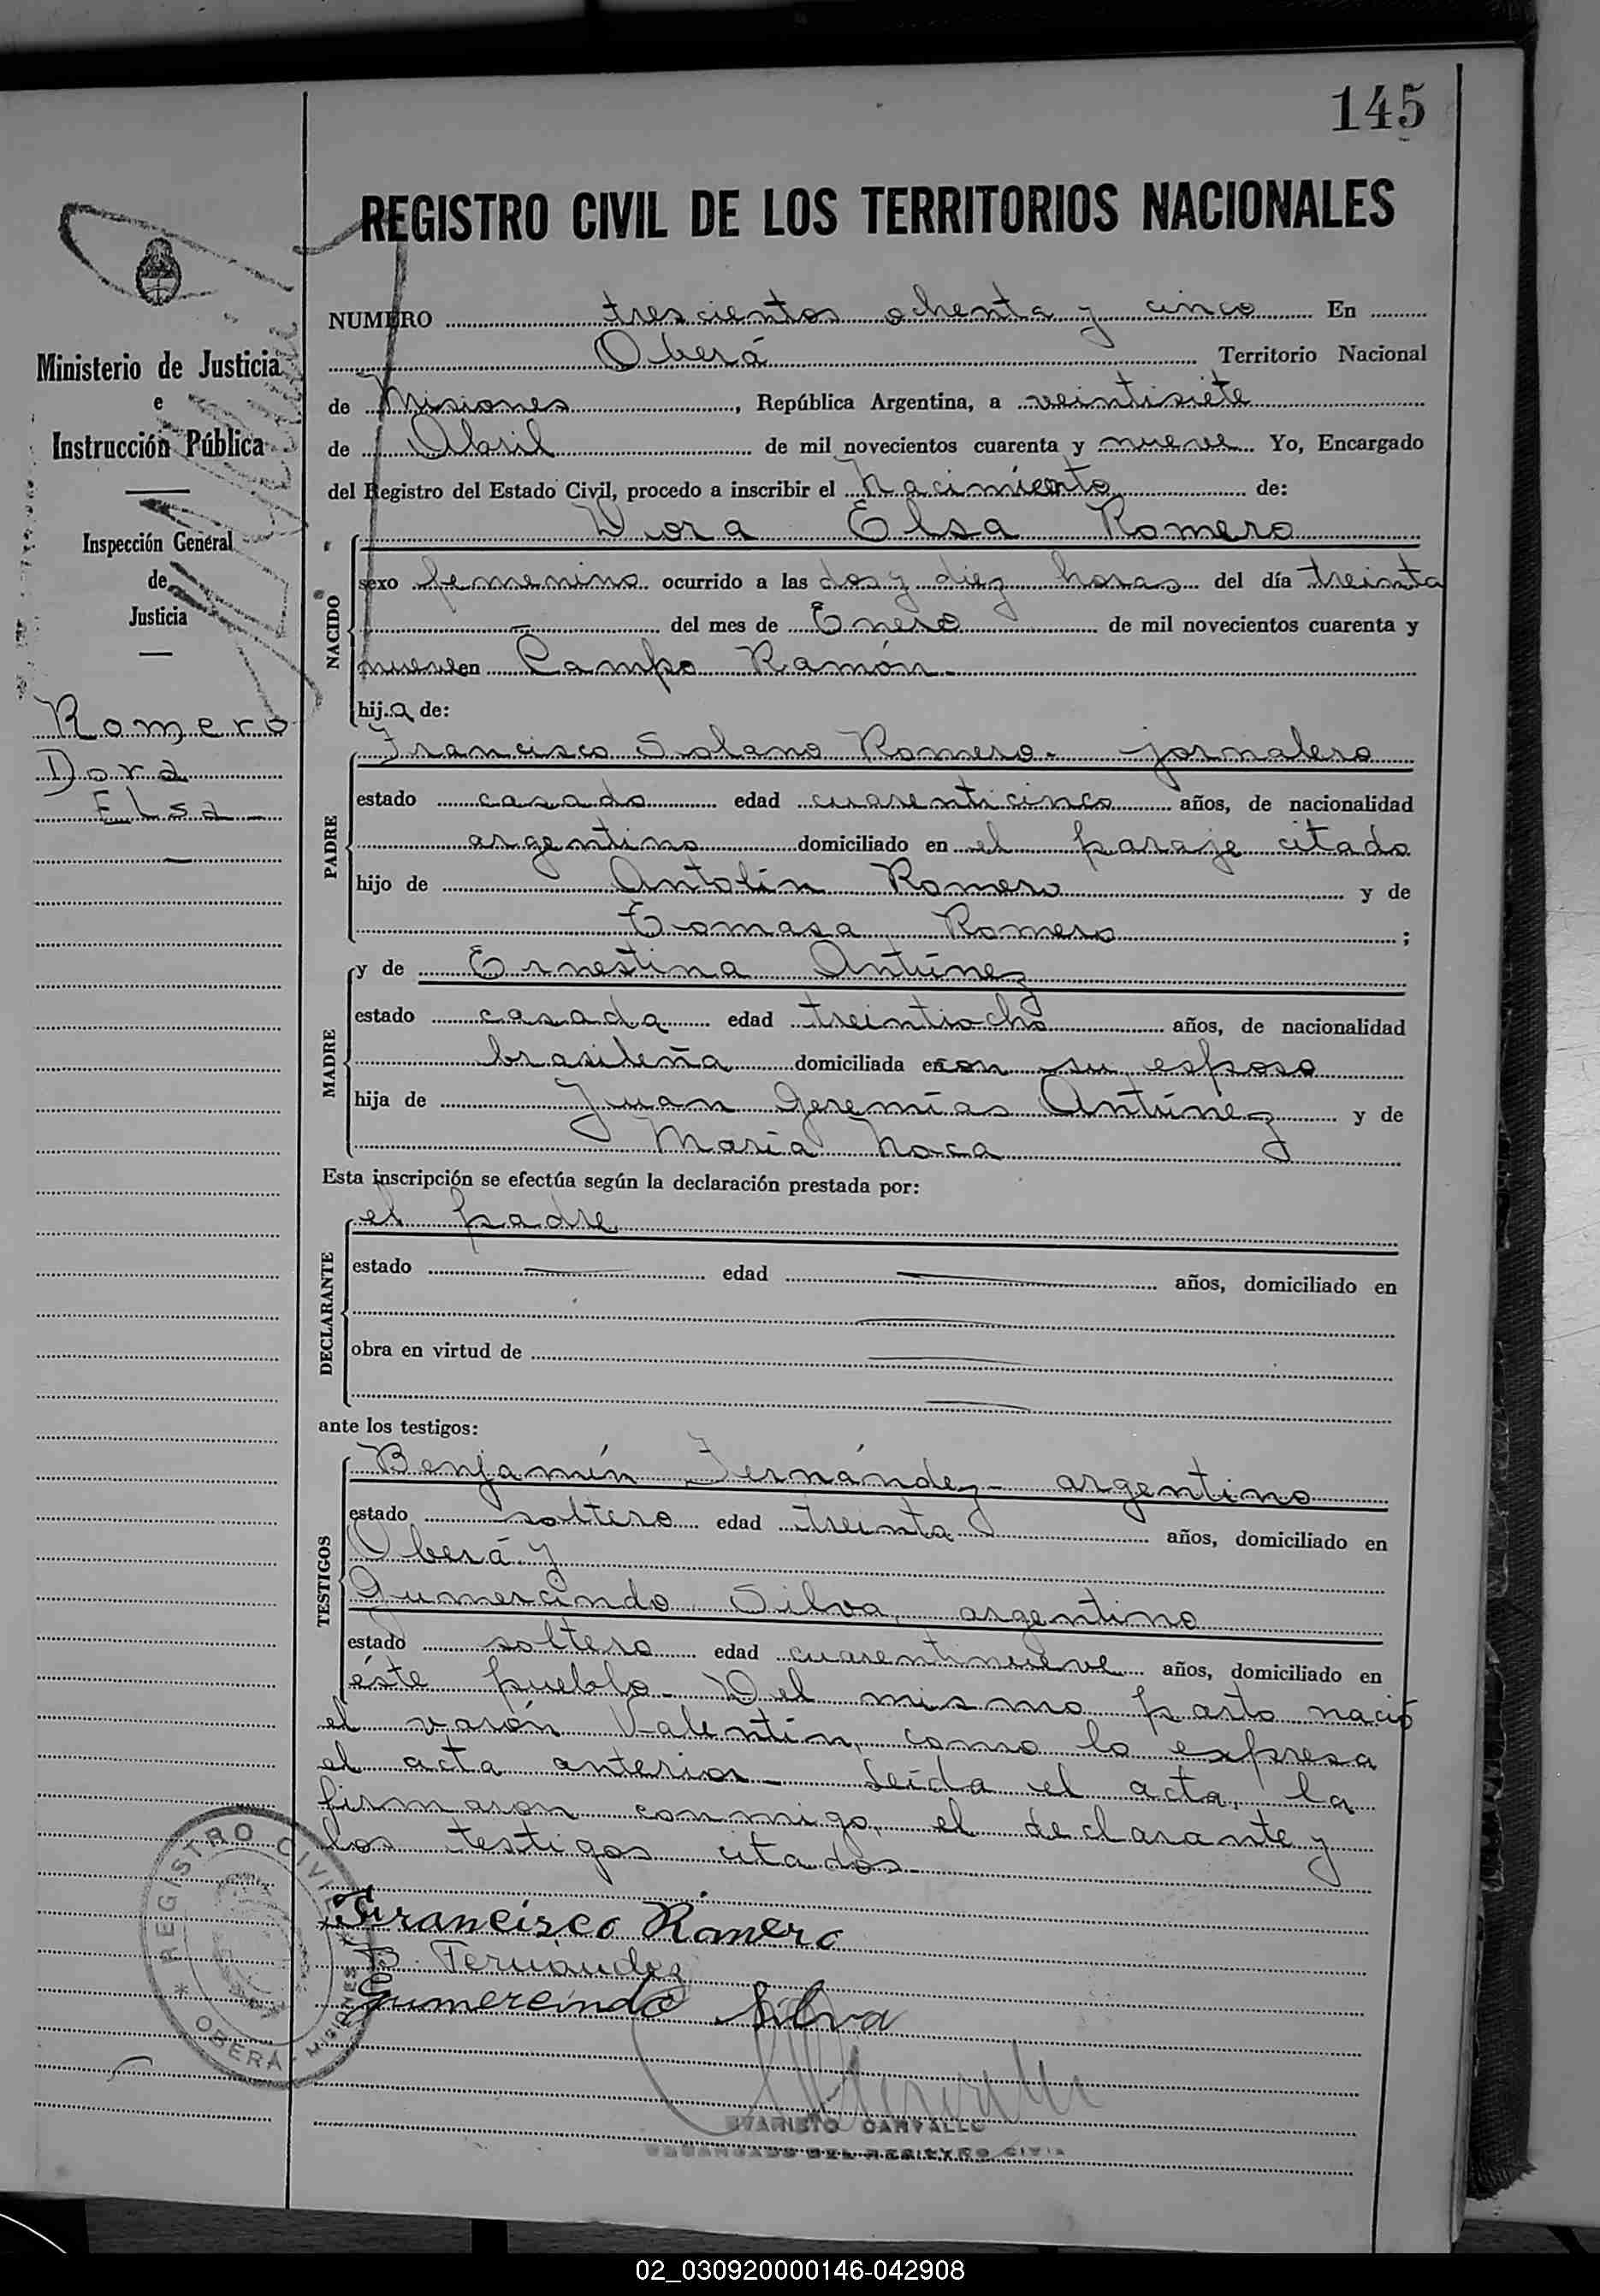 145
REGISTRO CIVIL DE LOS TERRITORIOS NACIONALES
Ministerio de Justicia
e
Instrucción Pública
Inspección General
de
Justicia
Romero
Dora
Elsa
NUMERO trescientos ochenta y cinco En
Oberá Territorio Nacional
de Misiones, República Argentina, a veintisiete
de Abril de mil novecientos cuarenta y nueve Yo, Encargado
del Registro del Estado Civil, procedo a inscribir el Nacimiento de:
Dora Elsa Romero
NACIDO
sexo femenino ocurrido a las dos y diez horas del día treinta
del mes de Enero de mil novecientos cuarenta y
nueve en Campo Ramón
hija de:
PADRE
Francisco Solano Romero - jornalero
estado casado edad cuarenticinco años, de nacionalidad
argentino domiciliado en el paraje citado
hijo de Antolín Romero y de
Tomasa Romero;
MADRE
y de Ernestina Antúnez
estado casada edad treintiocho años, de nacionalidad
brasileña domiciliada en con su esposo
hija de Juan Geremías Antúnez y de
María Noca
Esta inscripción se efectúa según la declaración prestada por:
DECLARANTE
el padre
estado edad años, domiciliado en
obra en virtud de
ante los testigos:
TESTIGOS
Benjamín Fernández - argentino
estado soltero edad treinta años, domiciliado en
Oberá y
Gumercindo Silva, argentino
estado soltero edad cuarentinueve años, domiciliado en
éste pueblo - Del mismo parto nació
el varón Valentín, como lo expresa
el acta anterior - Leída el acta, la
firmaron conmigo, el declarante y
los testigos citados -
Francisco Romero
B. Fernández
Gumercindo Silva
REGISTRO CIVIL
* OBERÁ - MISIONES
EVARISTO CARVALLO
ENCARGADO DEL REGISTRO CIVIL
02_030920000146-042908